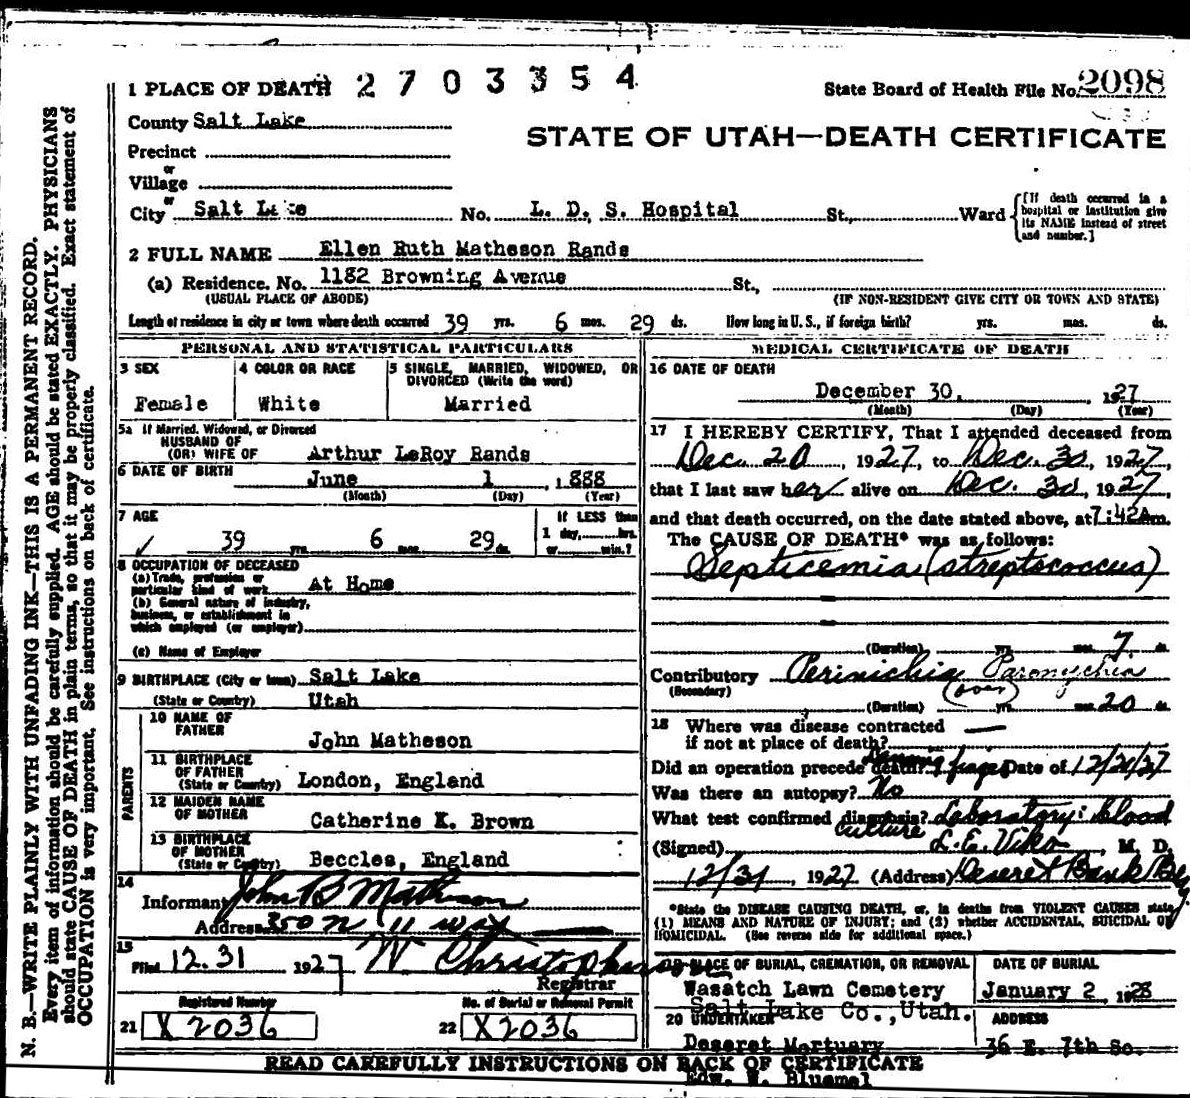 1 PLACE OF DEATH 2703354
State Board of Health File No. 2098
County Salt Lake
STATE OF UTAH—DEATH CERTIFICATE
Precinct
or
Village
or
City Salt Lake No. L. D. S. Hospital St., Ward
[If death occurred in a hospital or institution give its NAME instead of street and number.]
2 FULL NAME Ellen Ruth Matheson Rands
(a) Residence. No. 1182 Browning Avenue St.,
(USUAL PLACE OF ABODE) (IF NON-RESIDENT GIVE CITY OR TOWN AND STATE)
Length of residence in city or town where death occurred 39 yrs. 6 mos. 29 ds. How long in U. S., if foreign birth? yrs. mos. ds.
PERSONAL AND STATISTICAL PARTICULARS
3 SEX 4 COLOR OR RACE 5 SINGLE, MARRIED, WIDOWED, OR
DIVORCED (Write the word)
Female White Married
5a If Married, Widowed, or Divorced
HUSBAND OF
(OR) WIFE OF Arthur LeRoy Rands
6 DATE OF BIRTH June 1 , 1888
(Month) (Day) (Year)
7 AGE If LESS than
39 yrs. 6 mos. 29 ds. 1 day, hrs.
or min.?
8 OCCUPATION OF DECEASED
(a) Trade, profession or
particular kind of work At Home
(b) General nature of industry,
business, or establishment in
which employed (or employer)
(c) Name of Employer
9 BIRTHPLACE (City or town) Salt Lake
(State or Country) Utah
PARENTS
10 NAME OF
FATHER John Matheson
11 BIRTHPLACE
OF FATHER
(State or Country) London, England
12 MAIDEN NAME
OF MOTHER Catherine K. Brown
13 BIRTHPLACE
OF MOTHER
(State or Country) Beccles, England
14
Informant John B Matheson
Address 350 N 11 West
15
Filed 12.31 1927 W Christopherson
Registrar
Registered Number No. of Burial or Removal Permit
21 X 2036 22 X 2036
MEDICAL CERTIFICATE OF DEATH
16 DATE OF DEATH
December 30, , 1927
(Month) (Day) (Year)
17 I HEREBY CERTIFY, That I attended deceased from
Dec. 20, 1927, to Dec. 30, 1927,
that I last saw her alive on Dec. 30, 1927,
and that death occurred, on the date stated above, at 7:42 Am.
The CAUSE OF DEATH* was as follows:
Septicemia (streptococcus)
(Duration) yrs. mos. 7 ds.
Contributory Perinichia Paronychia
(Secondary) (over)
(Duration) yrs. mos. 20 ds.
18 Where was disease contracted
if not at place of death?
Did an operation precede death? finger Date of 12/20/27
Was there an autopsy? No
What test confirmed diagnosis? Laboratory: blood
culture
(Signed) L. E. Viko, M. D.
12/31, 1927 (Address) Deseret Bank Bldg
*State the DISEASE CAUSING DEATH, or, in deaths from VIOLENT CAUSES state
(1) MEANS AND NATURE OF INJURY; and (2) whether ACCIDENTAL, SUICIDAL OR
HOMICIDAL. (See reverse side for additional space.)
19 PLACE OF BURIAL, CREMATION, OR REMOVAL DATE OF BURIAL
Wasatch Lawn Cemetery January 2, 1928
Salt Lake Co., Utah.
20 UNDERTAKER ADDRESS
Deseret Mortuary 36 E. 7th So.
READ CAREFULLY INSTRUCTIONS ON BACK OF CERTIFICATE
Edw. W. Bluemel
N. B.—WRITE PLAINLY WITH UNFADING INK—THIS IS A PERMANENT RECORD.
Every item of information should be carefully supplied. AGE should be stated EXACTLY. PHYSICIANS
should state CAUSE OF DEATH in plain terms, so that it may be properly classified. Exact statement of
OCCUPATION is very important. See instructions on back of certificate.